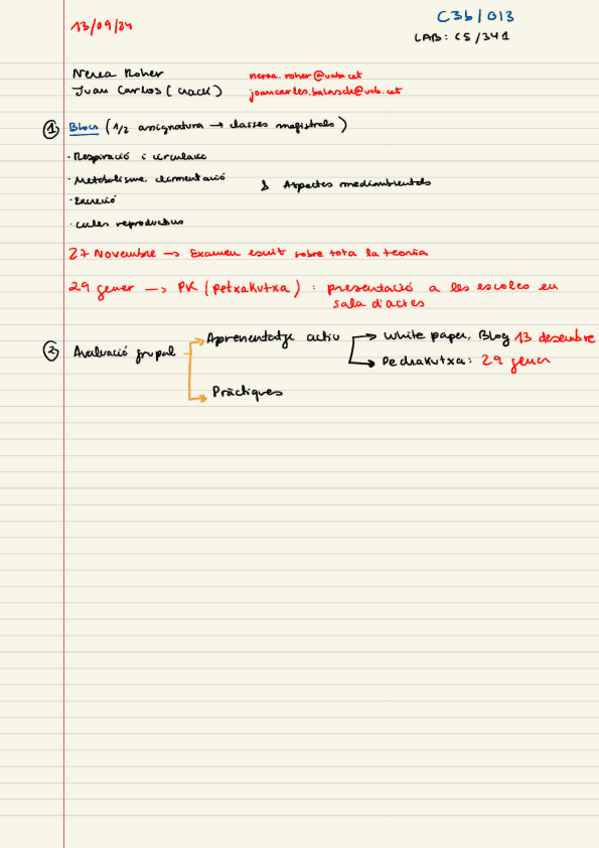 13/09/24
C3b/013
LAB: C5/341
Nerea Roher nerea.roher@uab.cat
Juan Carlos (crack) joancarles.balasch@uab.cat
① Blocs (1/2 assignatura → classes magistrals)
· Respiració i circulació
· Metabolisme, alimentació & Aspectes mediambientals
· Excreció
· reproductius
27 Novembre → Examen escrit sobre tota la teoria
29 gener → PK (Petxakutxa): presentació a les escoles en
sala d'actes
② Avaluació grupal
Aprenentatge actiu → White paper, Blog 13 desembre
→ Pechakutxa: 29 gener
→ Pràctiques